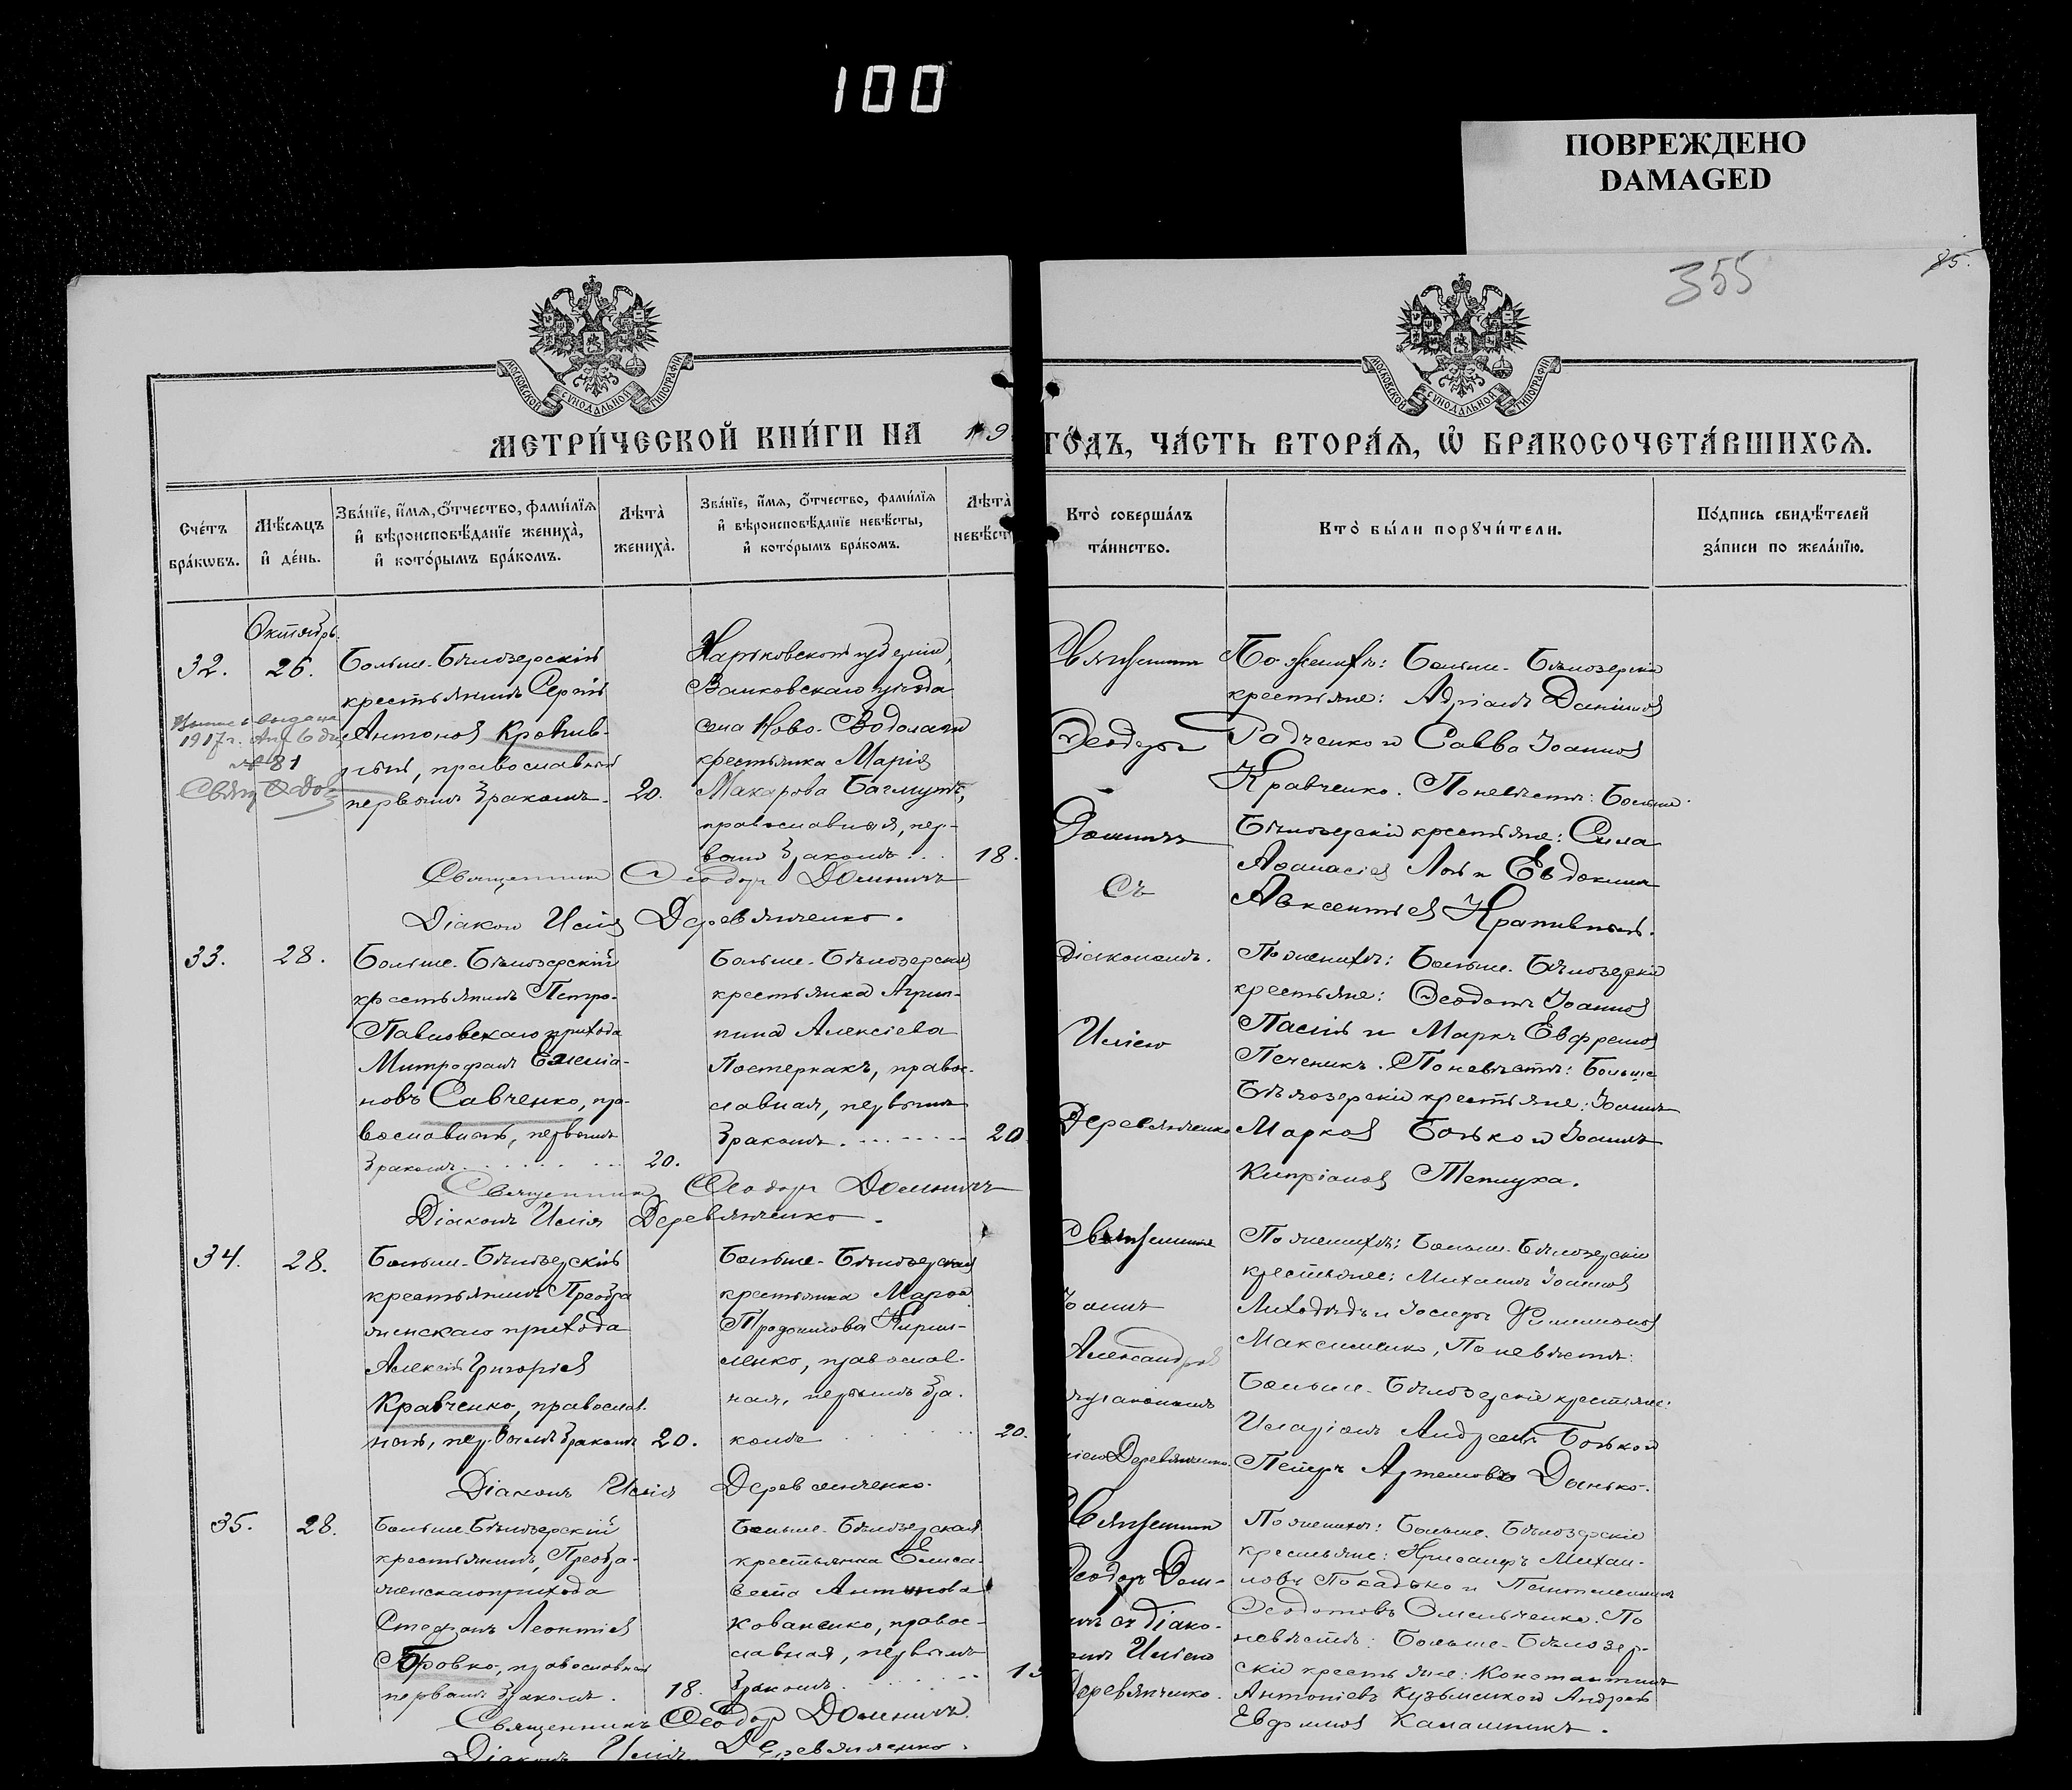 100
ПОВРЕЖДЕНО
DAMAGED
355
85.
МОСКОВСКОЙ СѴНОДАЛЬНОЙ ТИПОГРАФІИ
МОСКОВСКОЙ СѴНОДАЛЬНОЙ ТИПОГРАФІИ
МЕТРИ́ЧЕСКОЙ КНИ́ГИ НА 19
ГО́ДЪ, ЧА́СТЬ ВТОРА́Ѧ, Ѡ БРАКОСОЧЕТА́ВШИХСѦ.
Сче́тъ бра́кѡвъ.
Мѣ́сѧцъ и де́нь.
Зва́нїе, и́мѧ, ѻ́тчество, фами́лїѧ и вѣроисповѣ́данїе жениха̀, и кото́рымъ бра́комъ.
Лѣта̀ жениха̀.
Зва́нїе, и́мѧ, ѻ́тчество, фами́лїѧ и вѣроисповѣ́данїе невѣ́сты, и кото́рымъ бра́комъ.
Лѣта̀ невѣ́ст
Кто̀ соверша́лъ та́инство.
Кто̀ бы́ли порꙋчи́тели.
По́дпись свидѣ́телей за́писи по жела́нїю.
Октябрь.
32.
26.
Больше-Бѣлозерскій
крестьянинъ Сергій
Антоновъ Кропив-
ный, православный
первымъ бракомъ.
20.
выдана
1917 г.
№ 81
Харьковской губерніи,
Валковскаго уѣзда
села Ново-Водолаги
крестьянка Марія
Макарова Багмутъ,
православная, пер-
вымъ бракомъ...
18.
Священникъ
Ѳеодоръ
Домничъ
съ
По женихѣ: Больше-Бѣлозерскіе
крестьяне: Адріанъ Даніиловъ
Радченко и Савва Іоанновъ
Кравченко. По невѣстѣ: Больше-
Бѣлозерскіе крестьяне: Сила
Аѳанасіевъ и Евдокимъ
Авксентіевъ Крапивный.
Священникъ Ѳеодоръ Домничъ
Діаконъ Илія Деревянченко.
33.
28.
Больше-Бѣлозерскій
крестьянинъ Петро-
Павловскаго прихода
Митрофанъ Емелiа-
новъ Савченко, пра-
вославный, первымъ
бракомъ.
20.
Больше-Бѣлозерская
крестьянка Агрип-
пина Алексіева
Постернакъ, правос-
славная, первымъ
бракомъ.
20.
діакономъ.
Иліею
Деревянченко
По женихѣ: Больше-Бѣлозерскіе
крестьяне: Ѳеодотъ Іоанновъ
и Маркъ Евфремовъ
Печеникъ. По невѣстѣ: Больше
Бѣлозерскіе крестьяне: Іоаннъ
Марковъ Бонько и Іоаннъ
Кипріановъ Теплуха.
Священникъ Ѳеодоръ Домничъ
Діаконъ Илія Деревянченко.
34.
28.
Больше-Бѣлозерскій
крестьянинъ Преобра
женскаго прихода
Алексій Григоріевъ
Кравченко, православ-
ный, первымъ бракомъ
20.
Больше-Бѣлозерская
крестьянка Марѳа
Кирил-
ленко, православ-
ная, первымъ бра-
комъ
20.
Священникъ
Іоаннъ
Александровъ
Деревянченко.
По женихѣ: Больше-Бѣлозерскіе
крестьяне: Михаилъ Іоанновъ
Лиходѣдъ и Іосифъ Филимоновъ
Максименко, По невѣстѣ:
Больше-Бѣлозерскіе крестьяне:
Иларіонъ Андреевъ Бонько и
Петръ Артемовъ Донько.
Діаконъ Илія Деревянченко.
35.
28.
Больше-Бѣлозерскій
крестьянинъ, Преобра-
женскаго прихода
Стефанъ Леонтіевъ
Бровко, православный
первымъ бракомъ.
18.
Больше-Бѣлозерская
крестьянка Елиса-
вета Антонова
Коваленко, правос-
славная, первымъ
бракомъ.
Священникъ
Ѳеодоръ Дом-
ничъ съ діако-
номъ Иліею
Деревянченко.
По женихѣ: Больше-Бѣлозерскіе
крестьяне: Хрисанфъ Михаи-
ловъ и Пантелеимонъ
Ѳеодотовъ Омельченко. По
невѣстѣ: Больше-Бѣлозер-
скіе крестьяне: Константинъ
Антоніевъ Кузьменко и Андрей
Евфимовъ Калашникъ.
Священникъ Ѳеодоръ Домничъ.
Діаконъ Илія Деревянченко.